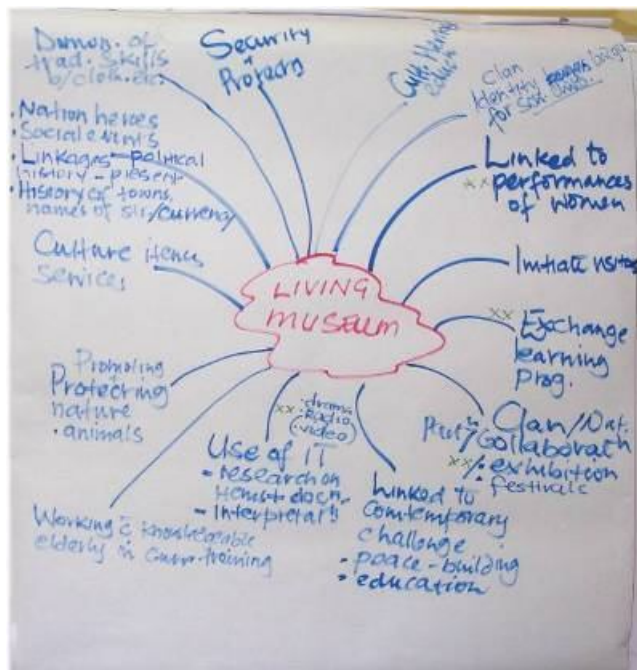 Demon. of
trad. skills
b/cloth. etc.
Security
Protectn
Cult. Heritage
educn
Clan
Identity
for
Linked to
xx performances
of women
Initiate visits
xx Exchange
learning
prog.
Clan/Nat.
Collaboratn
xx exhibition
festivals
Linked to
Contemporary
challenge
• peace-building
• education
• drama
xx • Radio
(• video)
Use of IT
- research on
items + docn.
- Interpretatn
Working c knowledgeable
elderly in training
Promoting
Protecting
nature
• animals
Culture items
Services
• Nation heroes
• Social events
• Linkages - political
history - present
• History of towns,
names of str/currency
LIVING
MUSEUM